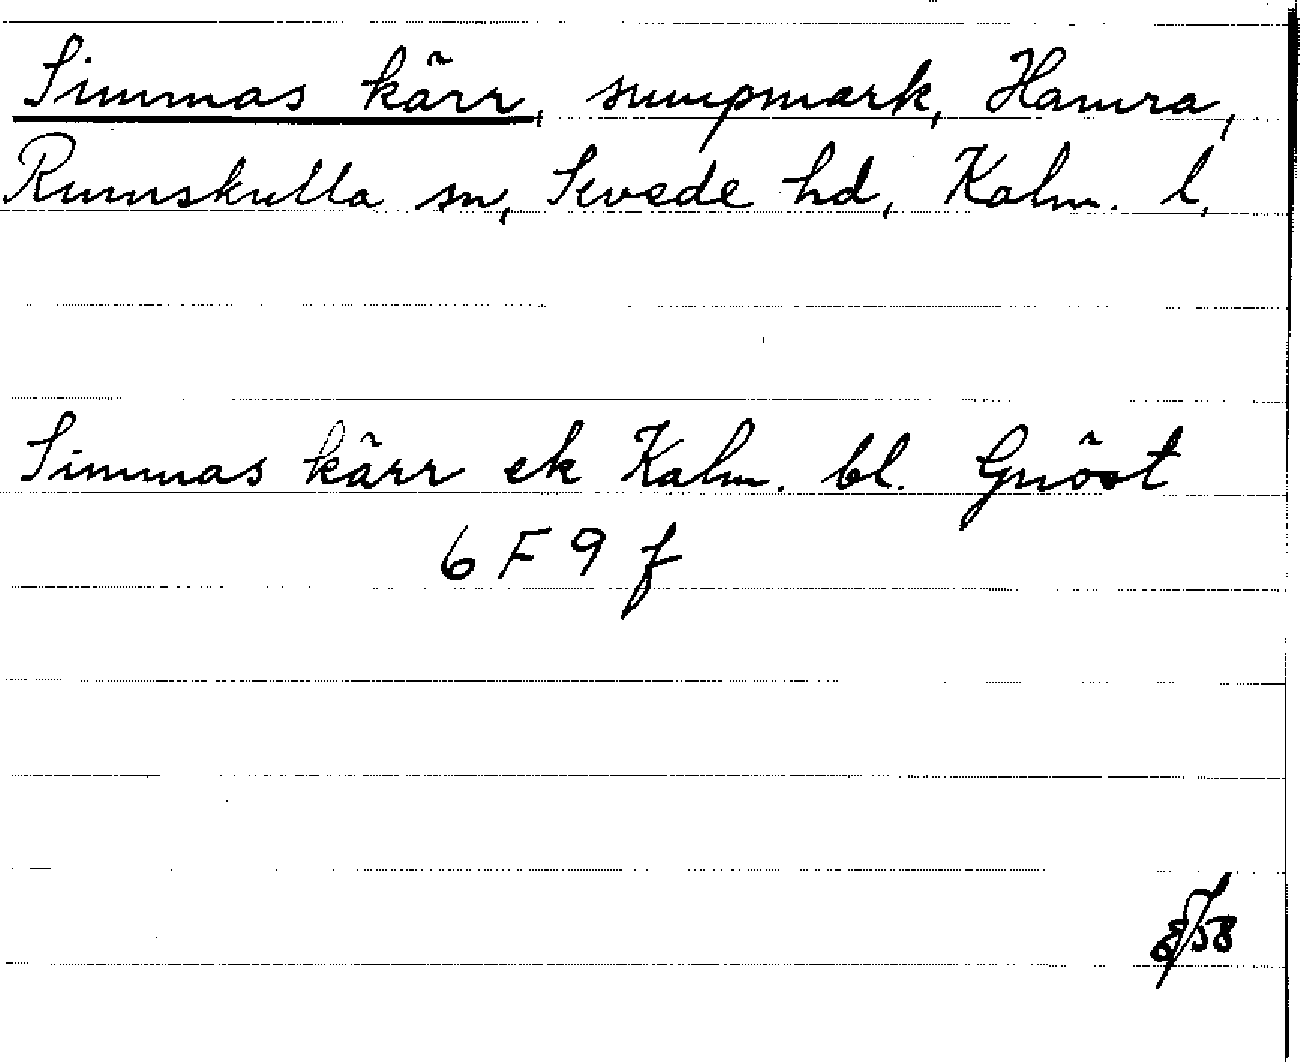 Simmas kärr, sumpmark, Hamra,
Rumskulla sn, Sevede hd, Kalm. l.
Simmas kärr ek Kalm. bl. Gnöst
6 F 9 f